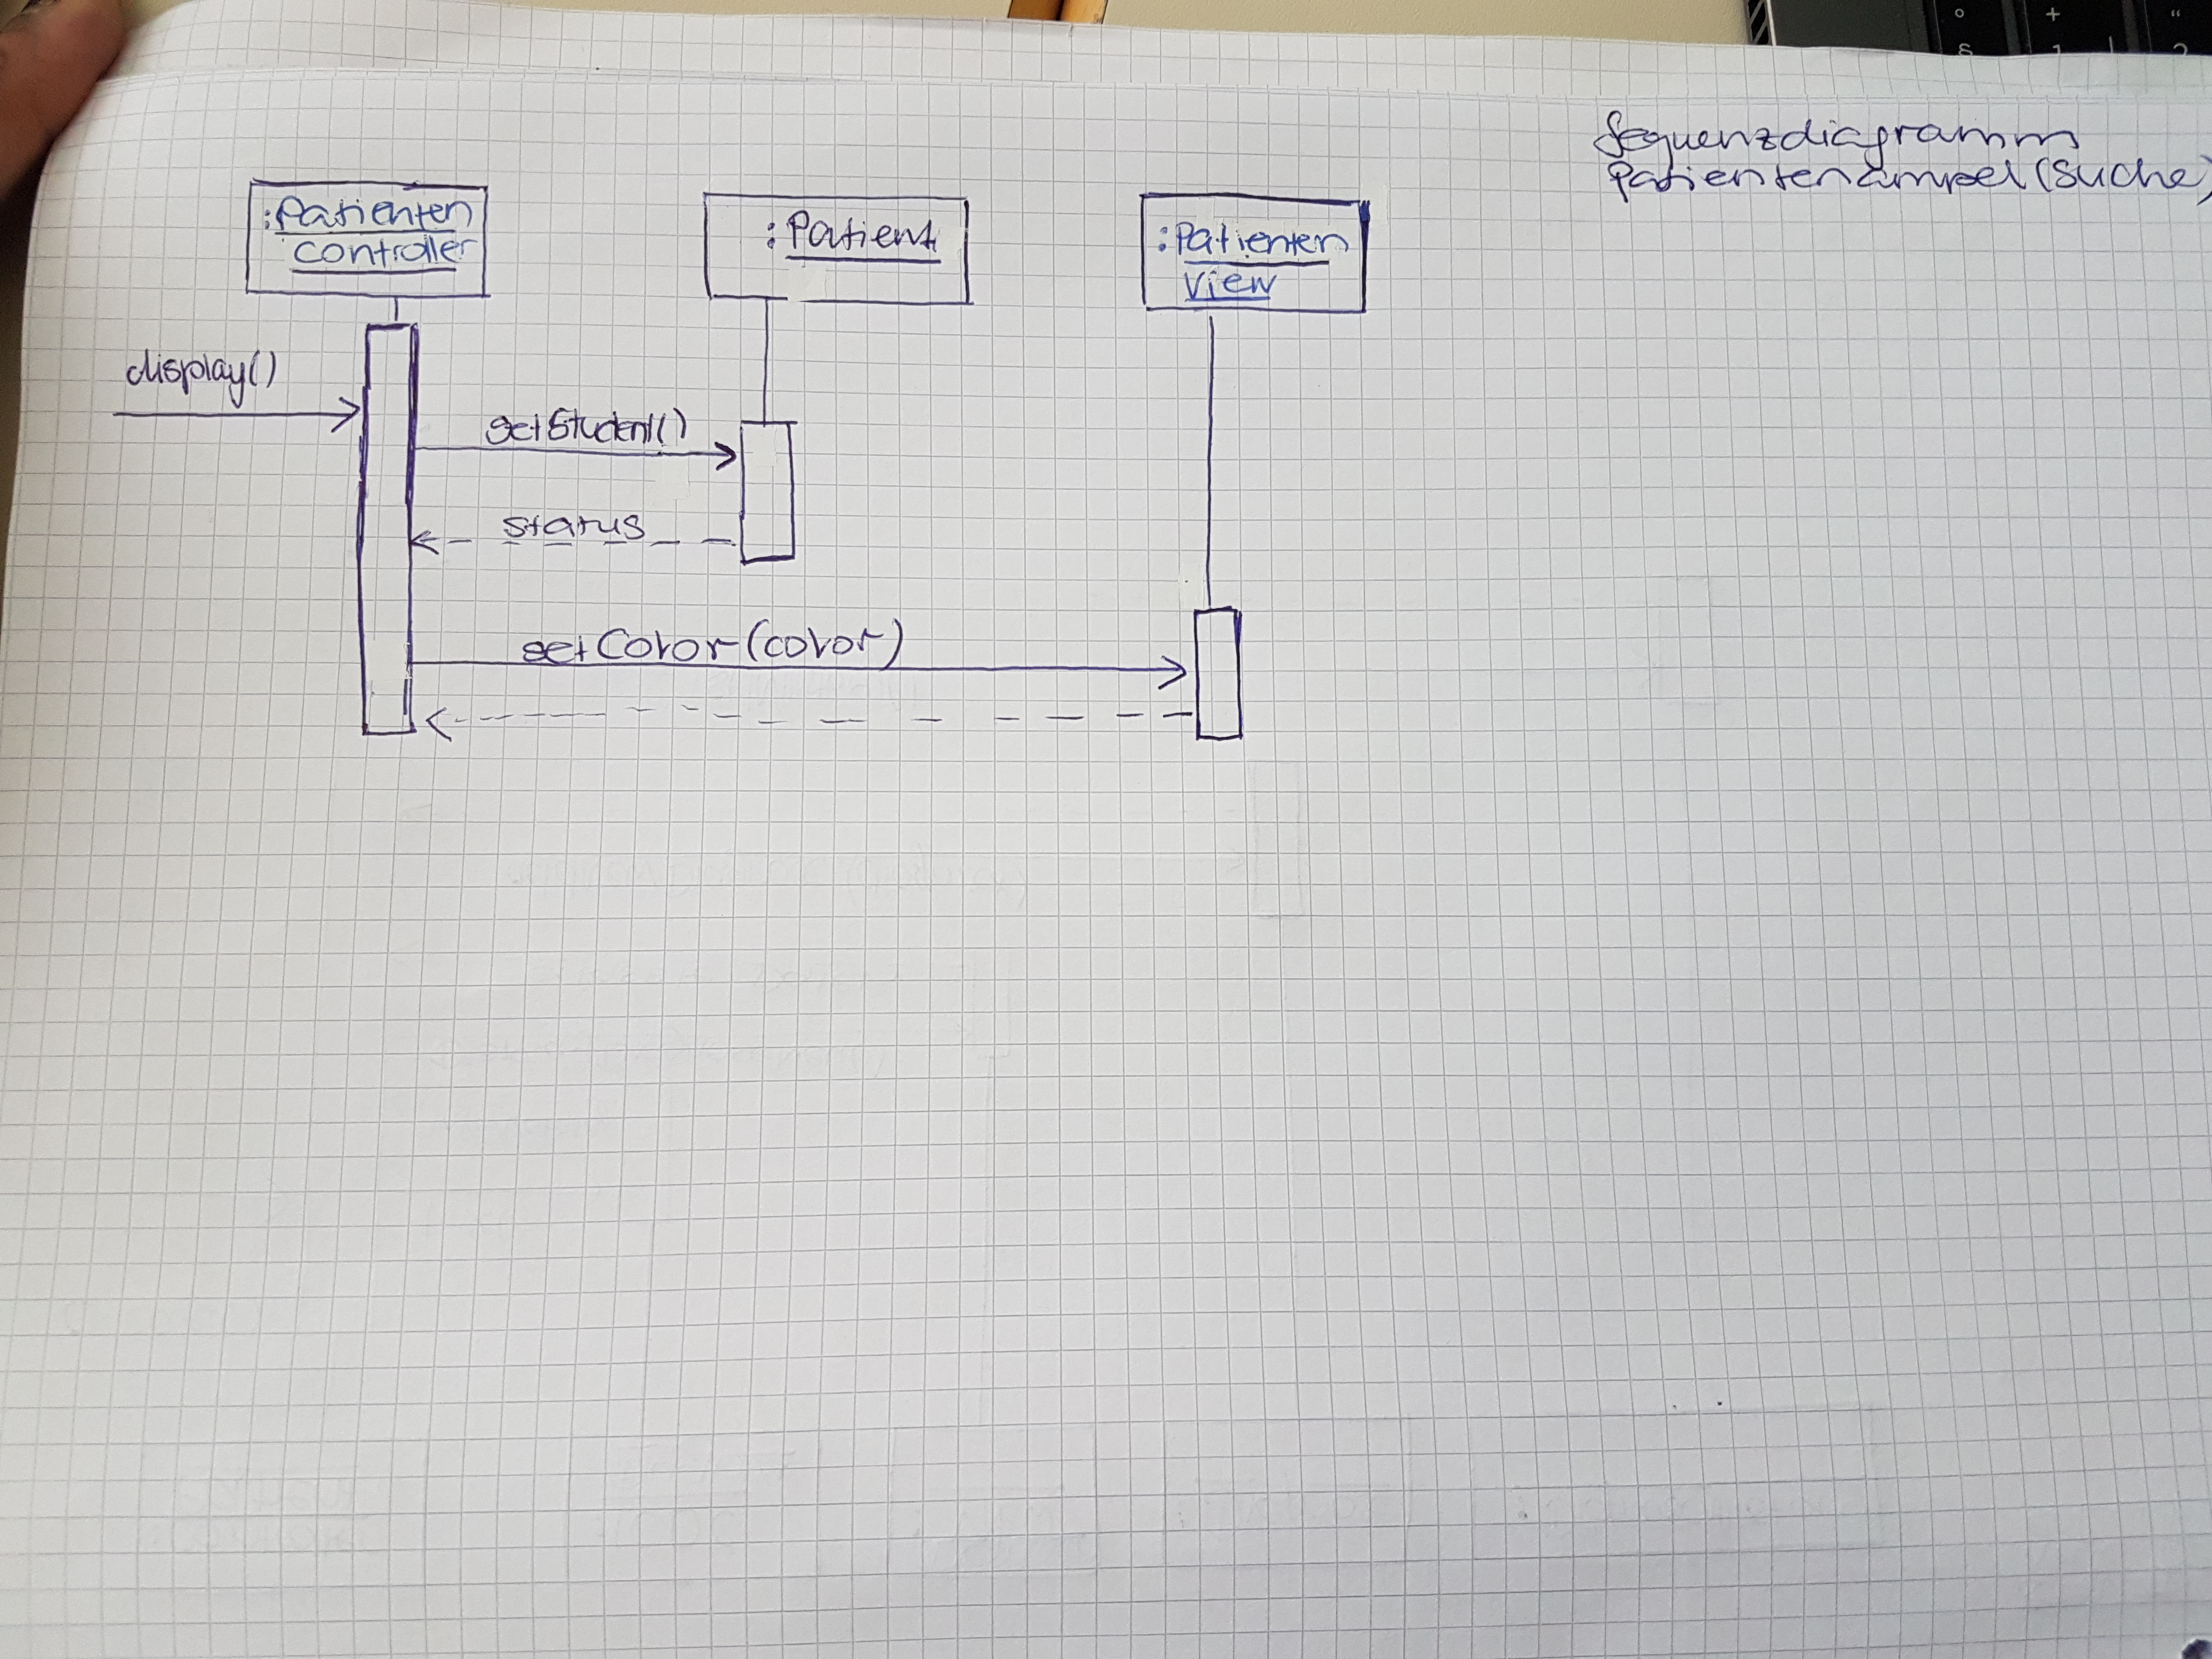 Sequenzdiagramm
Patientenampel (Suche)
:Patienten
controller
:Patient
:Patienten
View
display()
getStudent()
status
setColor(color)